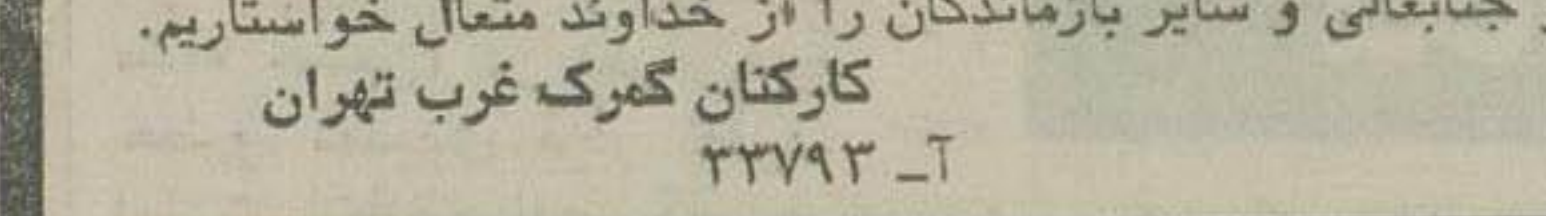 جنابعالی و سایر بازماندگان را از خداوند متعال خواستاریم.
کارکنان گمرک غرب تهران
آـ ۳۳۷۹۳